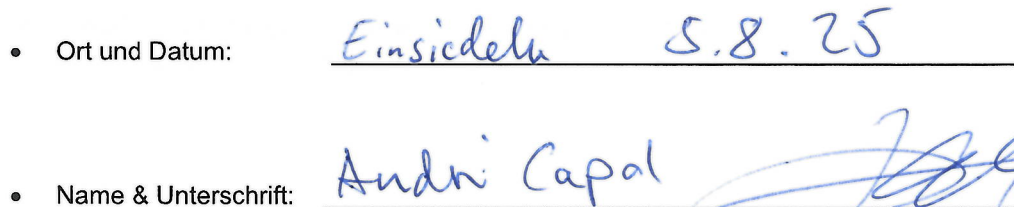 • Ort und Datum: Einsiedeln 5.8.25
• Name & Unterschrift: Andri Capol